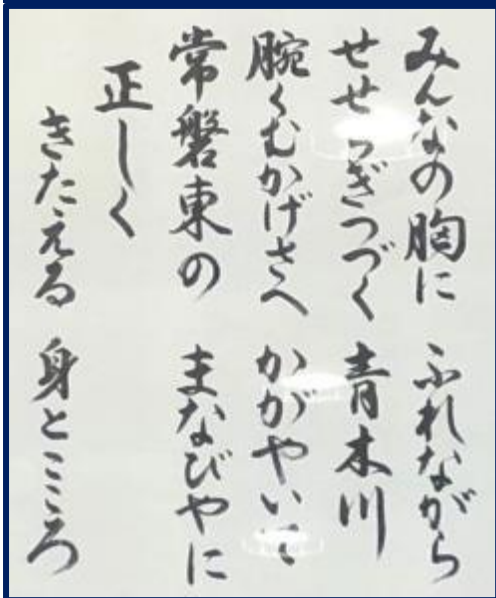 みんなの胸に ふれながら
せせらぎつづく 青木川
腕くむかげさへ かがやいて
常磐東の まなびやに
正しく
きたえる 身とこころ